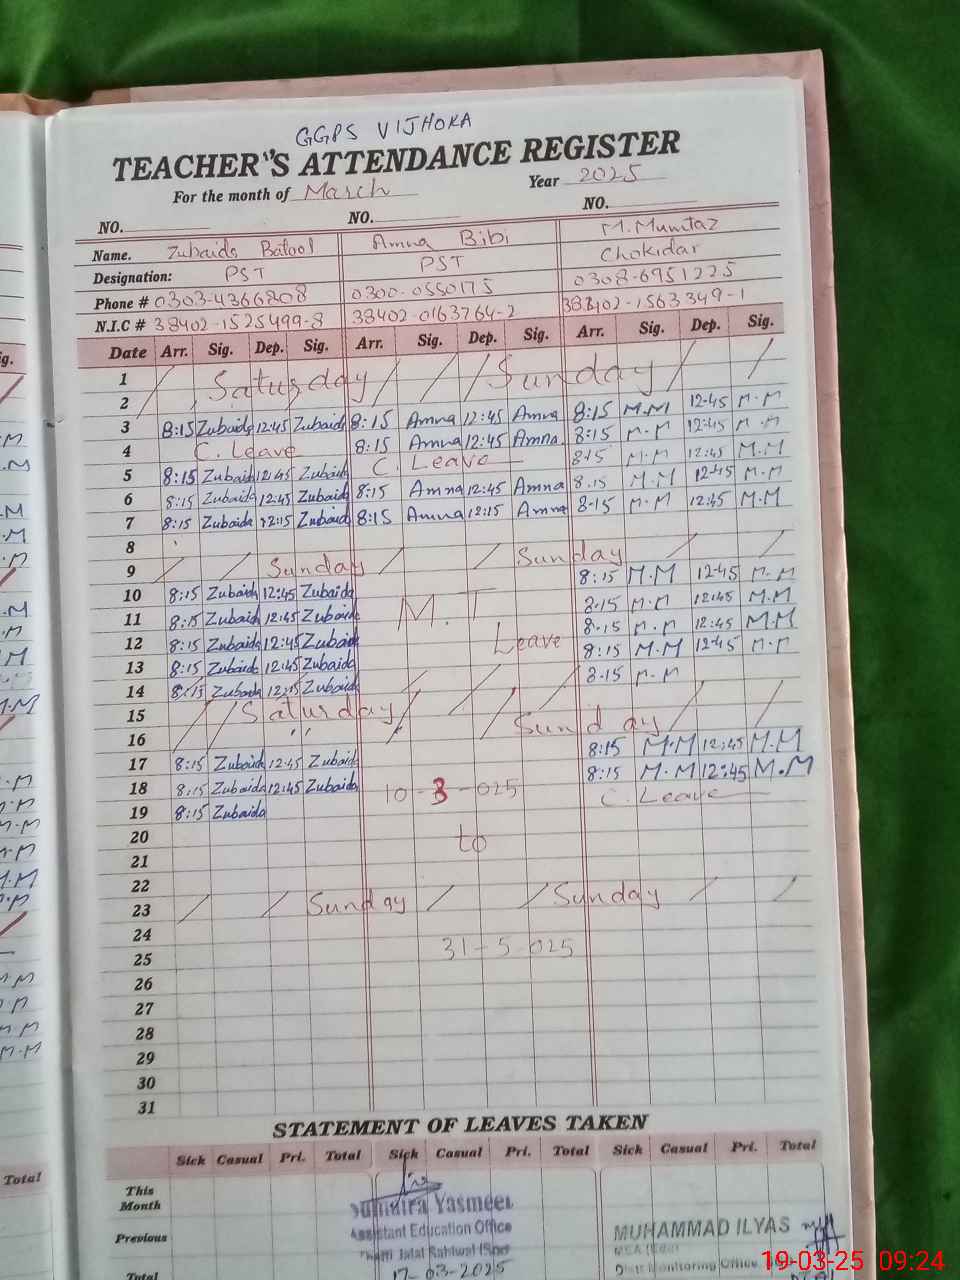 GGPS VIJHOKA
TEACHER'S ATTENDANCE REGISTER
For the month of March Year 2025
NO. NO. NO.
Name. Zubaida Batool Amna Bibi M.Mumtaz
Designation: PST PST Chokidar
Phone # 0303-4366808 0300-0550175 0308-6951225
N.I.C # 38402-1525499-8 38402-0163764-2 38402-1563349-1
Date Arr. Sig. Dep. Sig. Arr. Sig. Dep. Sig. Arr. Sig. Dep. Sig.
1 Saturday Sunday
2
3 8:15 Zubaida 12:45 Zubaida 8:15 Amna 12:45 Amna 8:15 M.M 12:45 M.M
4 C. Leave 8:15 Amna 12:45 Amna 8:15 M.M 12:45 M.M
5 8:15 Zubaida 12:45 Zubaida C. Leave 8:15 M.M 12:45 M.M
6 8:15 Zubaida 12:45 Zubaida 8:15 Amna 12:45 Amna 8:15 M.M 12:45 M.M
7 8:15 Zubaida 12:15 Zubaida 8:15 Amna 12:15 Amna 8:15 M.M 12:45 M.M
8
9 Sunday Sunday
10 8:15 Zubaida 12:45 Zubaida 8:15 M.M 12:45 M.M
11 8:15 Zubaida 12:45 Zubaida M.T 8:15 M.M 12:45 M.M
12 8:15 Zubaida 12:45 Zubaida Leave 8:15 M.M 12:45 M.M
13 8:15 Zubaida 12:45 Zubaida 8:15 M.M 12:45 M.M
14 8:15 Zubaida 12:15 Zubaida 8:15 M.M
15 Saturday Sunday
16
17 8:15 Zubaida 12:45 Zubaida 8:15 M.M 12:45 M.M
18 8:15 Zubaida 12:45 Zubaida 10-3-025 8:15 M.M 12:45 M.M
19 8:15 Zubaida C. Leave
20 to
21
22
23 Sunday Sunday
24
25 31-5-025
26
27
28
29
30
31
STATEMENT OF LEAVES TAKEN
Sick Casual Pri. Total Sick Casual Pri. Total Sick Casual Pri. Total
This Month
Previous
Total
Yasmeen
Assistant Education Office
17-03-2025
MUHAMMAD ILYAS
Monitoring Office
19-03-25 09:24